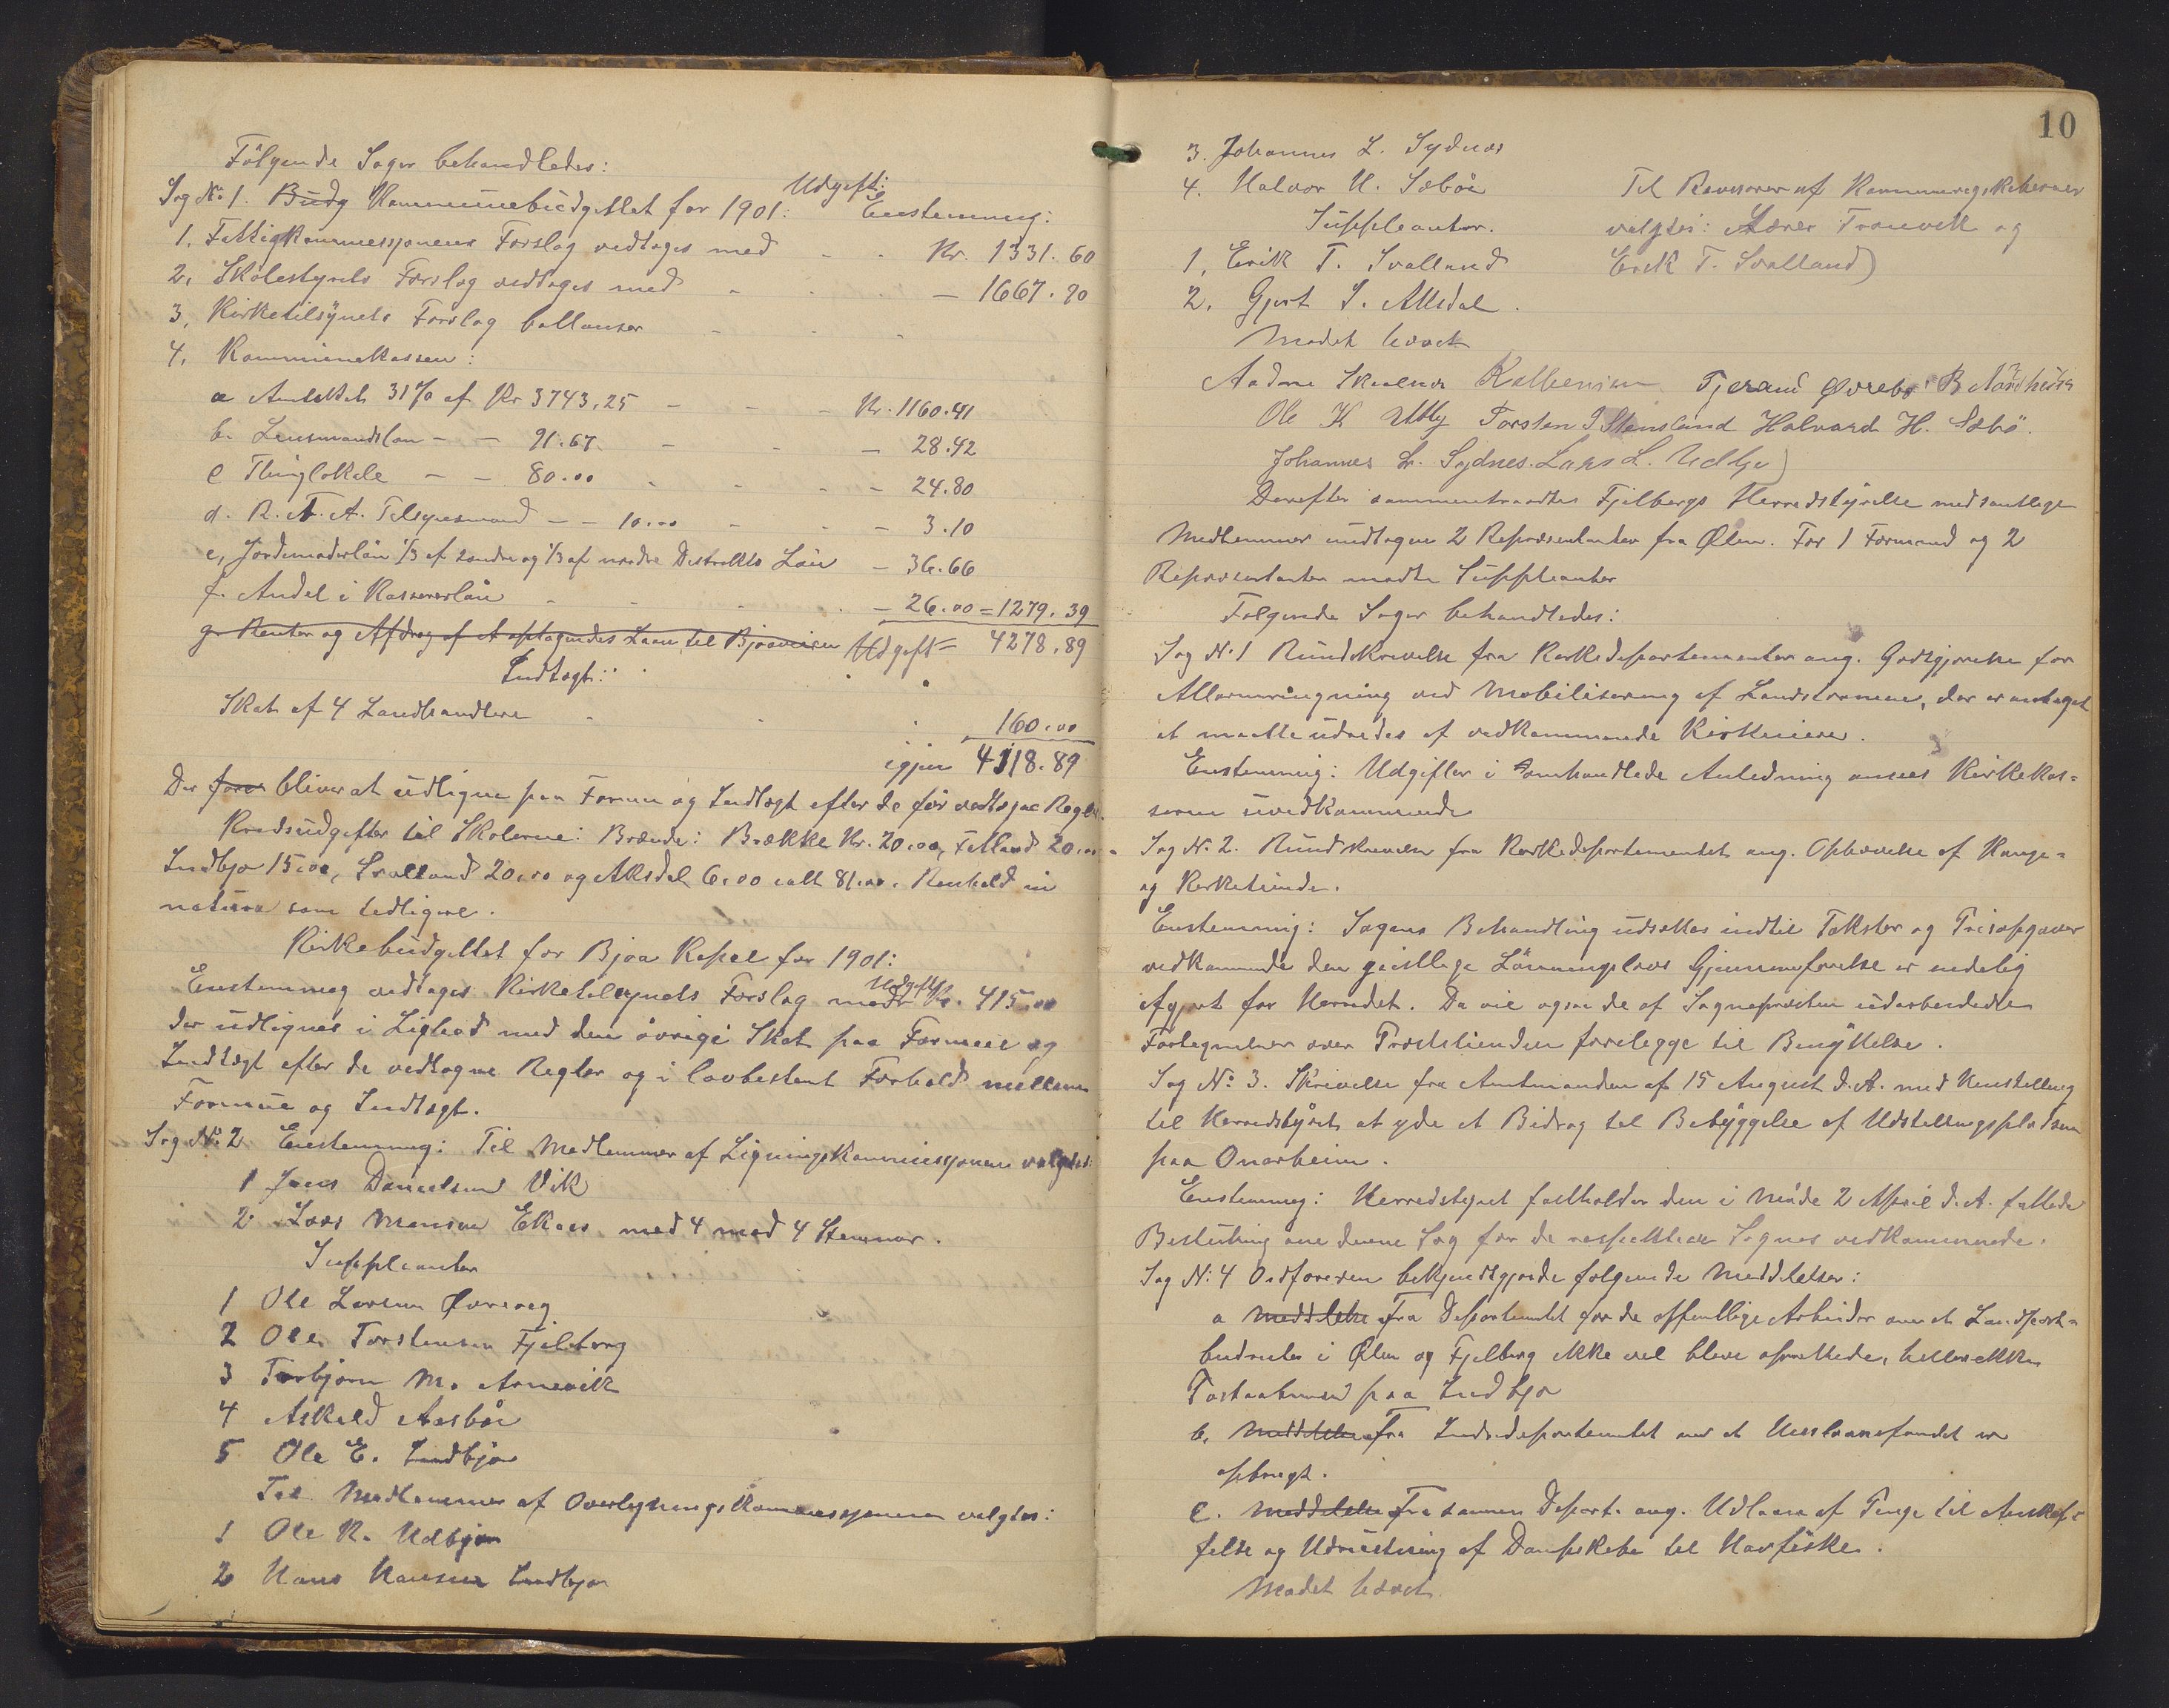 Følgende Sager behandledes:
Sag No 1. Budg Kommunebudgettet for 1901: Udgift: Enstemmig:
1. Fattigkommissjonens Forslag vedtages med - - Kr. 1331.60
2. Skolestyrets Forslag vedtages med - - — 1667.90
3, Kirketilsynets Forslag ballanser - - -
4, Kommunekassen:
a Amtsskat 31% af Kr 3743,25 - - - Kr. 1160.41
b. Lensmandsløn - - 91.67 - - — 28.42
c Thinglokale - - 80.00 - - - 24.80
d. R. A. A. Tilsynsmand - - 10.00 - - - 3.10
e, Jordemoderløn 1/3 af søndre og 1/3 af nordre Distrikts Løn — 36.66
f. Andel i Kassererløn - - - - — 26.00 = 1279.39
g. Renter og Afdrag af et optagendes Laan til Bjoaveien Udgift = 4278.89
Indtægt:
Skat af 4 Landhandlere - - - 160.00
igjen 4118.89
Der bliver at udligne paa Formue og Indtægt efter de før vedtagne Regler.
Kredsudgifter til Skolerne: Brænde: Brække Kr. 20.00, Fatland 20.00
Indbjo 15.00, Svalland 20.00 og Alsdal 6.00 ialt 81.00. Renhold in
natura som tidligere.
Kirkebudgettet for Bjoa Kapel for 1901:
Enstemmig vedtages Kirketilsynets Forslag med Udgift Kr. 415.00
der udlignes i Lighed med den øvrige Skat paa Formue og
Indtægt efter de vedtagne Regler og i lovbestemt Forhold mellem
Formue og Indtægt.
Sag No 2 Enstemmig: Til Medlemmer af Ligningskommissjonen valgtes:
1 Jens Danielsen Vik
2 Lars Monsen Ekaas med 4 med 4 Stemmer.
Suppleanter
1 Ole Larsen Øvrevig
2 Ole Torstensen Fjelberg
3 Torbjørn M. Arnevik
4 Askild Aasbø
5 Ole E. Indbjo
Til Medlemmer af Overligningskommissjonen valgtes:
1 Ole K. Udbjo
2 Hans Hansen Indbjo
10
3. Johannes L. Sydnes
4. Halvor H. Sæbø
Suppleanter.
1, Erik T. Svalland
2. Gjert S. Alsdal.
Til Revisorer af Kommuneregnskaberne
valgtes: Lærer Tranvik og
Erik T. Svalland)
Mødet hævet
Aadne Skaalnes Tjerand Øvrebø B Nordhuus
Ole K Utby Torsten T Stensland Halvard H. Sæbø.
Johannes L. Sydnes. Lars L. Udbjo)
Derefter sammentraadte Fjelbergs Herredstyrelse med samtlige
Medlemmer undtagen 2 Repræsentanter fra Ølen. For 1 Formand og 2
Repræsentanter mødte Suppleanter
Følgende Sager behandledes:
Sag No 1 Rundskrivelse fra Kirkedepartementet ang. Godtgjørelse for
Allarmringning ved Mobilisering af Landstormen, der er antaget
at maatte udredes af vedkommende Kirkeeiere.
Enstemmig: Udgifter i omhandlede Anledning ansees Kirkekas=
serne uvedkommende
Sag No. 2. Rundskrivelse fra Kirkedepartementet ang. Ophævelse af Konge=
og Kirketiende.
Enstemmig: Sagens Behandling udsættes indtil Takster og Prisopgaver
vedkommende den geistlige Lønningslovs Gjennemførelse er endelig
afgjort for Herredet. Da vil ogsaa de af Sognepresten udarbeidede
Fortegnelser over Prestetienden foreligge til Benyttelse.
Sag No 3. Skrivelse fra Amtmanden af 15 August d.A. med Henstilling
til Herredstyret at yde et Bidrag til Bebyggelse af Udstillingspladsen
paa Onarheim.
Enstemmig: Herredstyret fastholder den i Møde 2 April d.A. fattede
Beslutning om denne Sag for de respektive Sognes vedkommende.
Sag No 4 Ordføreren bekjendtgjorde følgende Meddelelser:
a Meddelelse Fra Departementet for de offentlige Arbeider om at Landpost=
budruter i Ølen og Fjelberg ikke vil blive oprettede, heller ikke
Postaabneri paa Indbjo
b, Meddelelse fra Indredepartementet om at Huslaansfondet er
opbrugt.
c. Meddelelse Fra samme Depart. ang. Udlaan af Penge til Anskaf=
felse og Udrustning af Dampskibe til Havfiske.
Mødet hævet